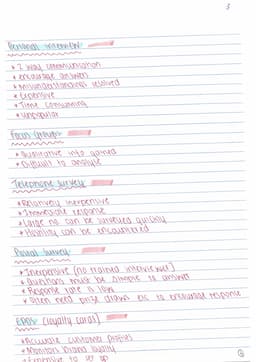 3
Personal interview
* 2 way communication
* encourage answers
* misunderstandings resolved
* Expensive
* Time consuming
* unpopular
Focus groups
* Qualitative info gained
* Difficult to analyse
Telephone survey
* Relatively inexpensive
* Immediate response
* Large no can be surveyed quickly
* Hostility can be encountered
Postal survey
* Inexpensive (no trained interviewer)
* Questions must be simple to answer
* Response rate is low
* Often need prize draws etc to encourage response
EPOS (loyalty cards)
* Accurate customer profiles
* Monitors brand loyalty
* Expensive to set up